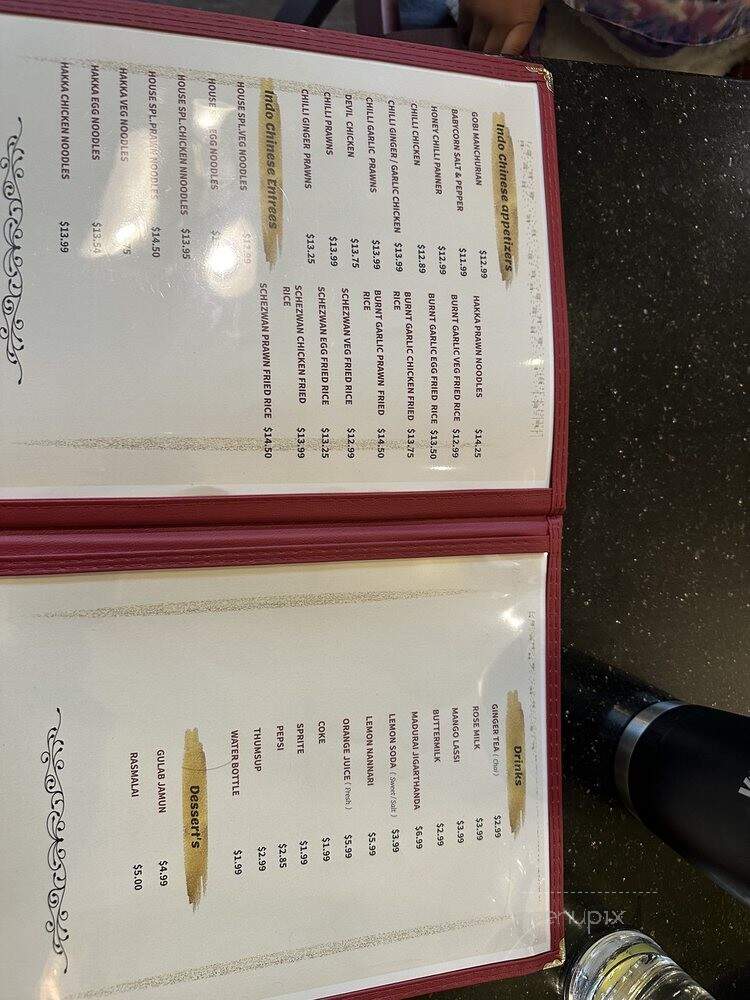 Indo Chinese appetizers
GOBI MANCHURIAN $12.99
BABYCORN SALT & PEPPER $11.99
HONEY CHILLI PANNER $12.99
CHILLI CHICKEN $12.89
CHILLI GINGER / GARLIC CHICKEN $13.99
CHILLI GARLIC PRAWNS $13.99
DEVIL CHICKEN $13.75
CHILLI PRAWNS $13.99
CHILLI GINGER PRAWNS $13.25
Indo Chinese Entrees
HOUSE SPL.VEG NOODLES $12.99
HOUSE EGG NOODLES
HOUSE SPL.CHICKEN NNOODLES $13.95
HOUSE SPL.PRAWN NOODLES $14.50
HAKKA VEG NOODLES
HAKKA EGG NOODLES $13.54
HAKKA CHICKEN NOODLES $13.99
HAKKA PRAWN NOODLES $14.25
BURNT GARLIC VEG FRIED RICE $12.99
BURNT GARLIC EGG FRIED RICE $13.50
BURNT GARLIC CHICKEN FRIED $13.75
RICE
BURNT GARLIC PRAWN FRIED $14.50
RICE
SCHEZWAN VEG FRIED RICE $12.99
SCHEZWAN EGG FRIED RICE $13.25
SCHEZWAN CHICKEN FRIED $13.99
RICE
SCHEZWAN PRAWN FRIED RICE $14.50
Drinks
GINGER TEA ( Chai ) $2.99
ROSE MILK $3.99
MANGO LASSI $3.99
BUTTERMILK $2.99
MADURAI JIGARTHANDA $6.99
LEMON SODA ( Sweet / Salt ) $3.99
LEMON NANNARI $5.99
ORANGE JUICE ( Fresh ) $5.99
COKE $1.99
SPRITE $1.99
PEPSI $2.85
THUMSUP $2.99
WATER BOTTLE $1.99
Dessert's
GULAB JAMUN $4.99
RASMALAI $5.00
menupix